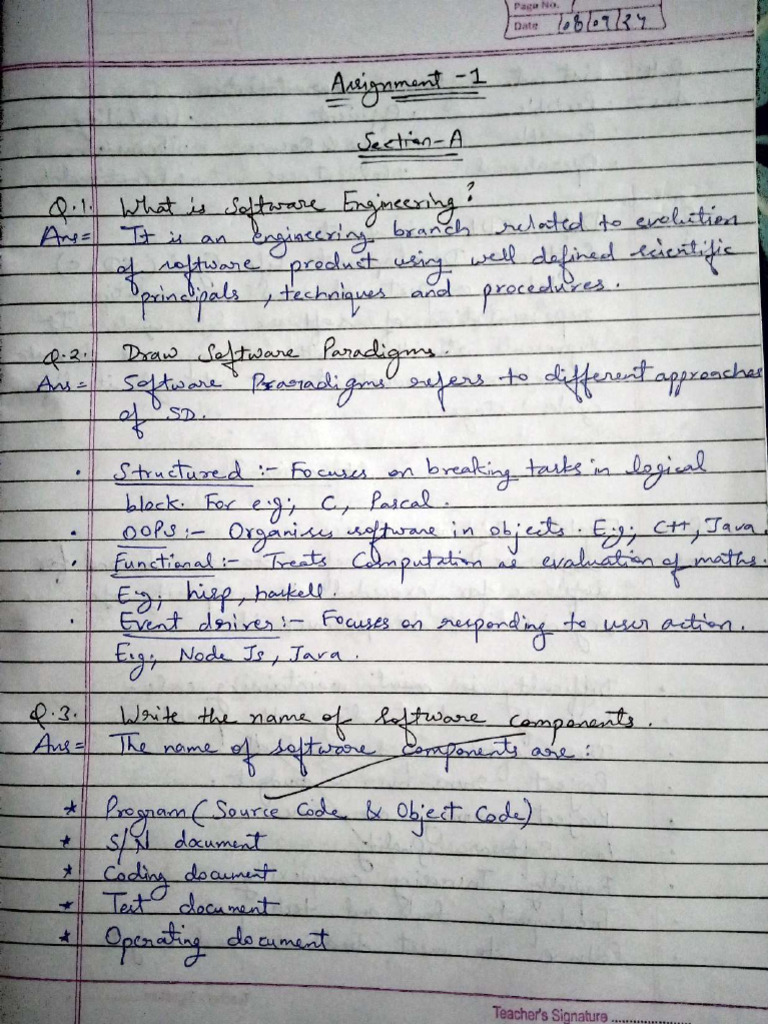 Page No.
Date 08/09/24
Assignment -1
Section-A
Q.1. What is Software Engineering?
Ans= It is an engineering branch related to evolution
of software product using well defined scientific
principals, techniques and procedures.
Q.2. Draw Software Paradigms.
Ans= Software Praradigms refers to different approaches
of SD.
• Structured :- Focuses on breaking tasks in logical
block. For e.g; C, Pascal.
• OOPS :- Organises software in objects. E.g; C++, Java.
• Functional :- Treats Computation as evaluation of maths.
E.g; hisp, haskell.
• Event driver :- Focuses on responding to user action.
E.g; Node Js, Java.
Q.3. Write the name of Software components.
Ans= The name of software components are :
* Program (Source Code & Object Code)
* S/N document
* Coding document
* Test document
* Operating document
Teacher's Signature ....................